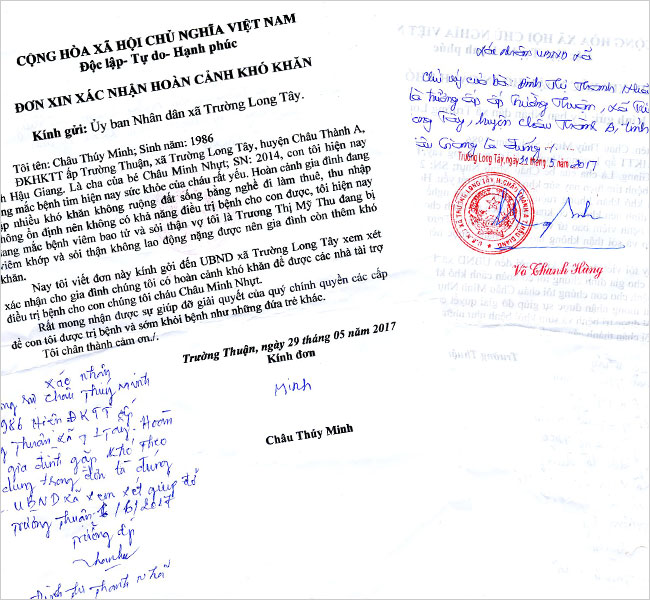 CỘNG HÒA XÃ HỘI CHỦ NGHĨA VIỆT NAM
Độc lập- Tự do- Hạnh phúc
ĐƠN XIN XÁC NHẬN HOÀN CẢNH KHÓ KHĂN
Kính gửi: Ủy ban Nhân dân xã Trường Long Tây.
Tôi tên: Châu Thúy Minh; Sinh năm: 1986
ĐKHKTT ấp Trường Thuận, xã Trường Long Tây, huyện Châu Thành A,
h Hậu Giang. Là cha của bé Châu Minh Nhựt; SN: 2014, con tôi hiện nay
ng mắc bệnh tim hiện nay sức khỏe của cháu rất yếu. Hoàn cảnh gia đình đang
ặp nhiều khó khăn không ruộng đất sống bằng nghề đi làm thuê, thu nhập
hông ổn định nên không có khả năng điều trị bệnh cho con được, tôi hiện nay
ang mắc bệnh viêm bao tử và sỏi thận vợ tôi là Trương Thị Mỹ Thu đang bị
viêm khớp và sỏi thận không lao động nặng được nên gia đình còn thêm khó
khăn.
Nay tôi viết đơn này kính gởi đến UBND xã Trường Long Tây xem xét
xác nhận cho gia đình chúng tôi có hoàn cảnh khó khăn để được các nhà tài trợ
điều trị bệnh cho con chúng tôi cháu Châu Minh Nhựt.
Rất mong nhận được sự giúp đỡ giải quyết của quý chính quyền các cấp
để con tôi được trị bệnh và sớm khỏi bệnh như những đứa trẻ khác.
Tôi chân thành cảm ơn./.
Trường Thuận, ngày 29 tháng 05 năm 2017
Kính đơn
Minh
Châu Thúy Minh
Xác nhận
Châu Thúy Minh
986 Hiện ĐKTT ấp
Thuận xã T L Tây. Hoàn
gia đình gặp khó theo
dung trong đơn là đúng
UBND xã xem xét giúp đỡ
Trường Thuận /6/2017
Trưởng ấp
Đinh Thị Thanh Nhã
Xác nhận UBND xã
Chữ ký của bà Đinh Thị Thanh Nhã
là trưởng ấp ấp Trường Thuận, xã Trư
ong Tây, huyện Châu Thành A, tỉnh
ậu Giang là đúng.
Trường Long Tây, ngày 21 tháng 5 năm 2017
Võ Thanh Hùng